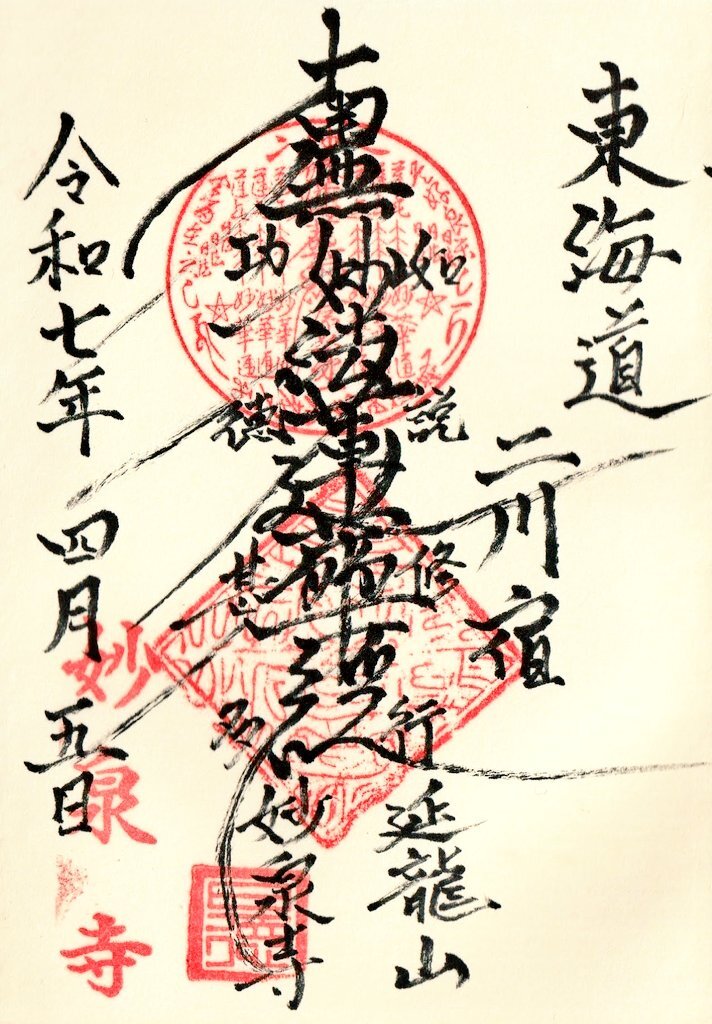 東海道
二川宿
延龍山
如説修行
南無妙法蓮華経
功徳甚多
妙泉寺
令和七年四月五日
妙泉寺